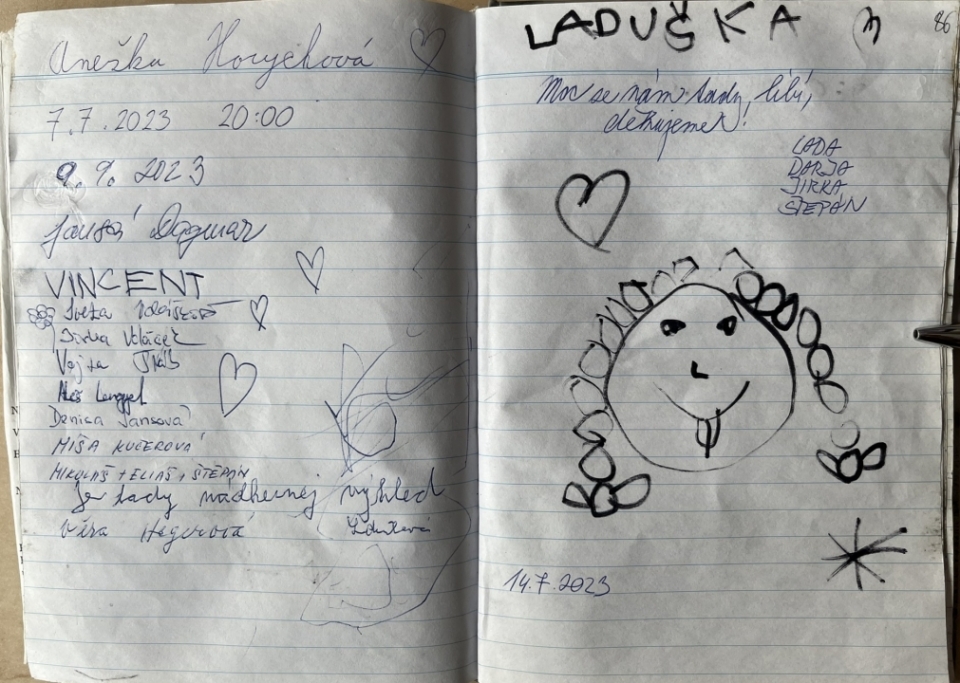 Anežka Horychová
7.7.2023 20:00
9.9. 2023
Dagmar
VINCENT
Světa
Jirka Voláček
Vojta
Aleš Lengyel
Denisa Jansová
MÍŠA KUČEROVÁ
MIKOLÁŠ + ELIÁŠ + ŠTĚPÁN
Je tady nádhernej výhled
Věra Hegerová
LADUŠKA
86
Moc se nám tady líbí,
děkujeme!
LADA
DARJA
JIRKA
ŠTEPÁN
14.7.2023